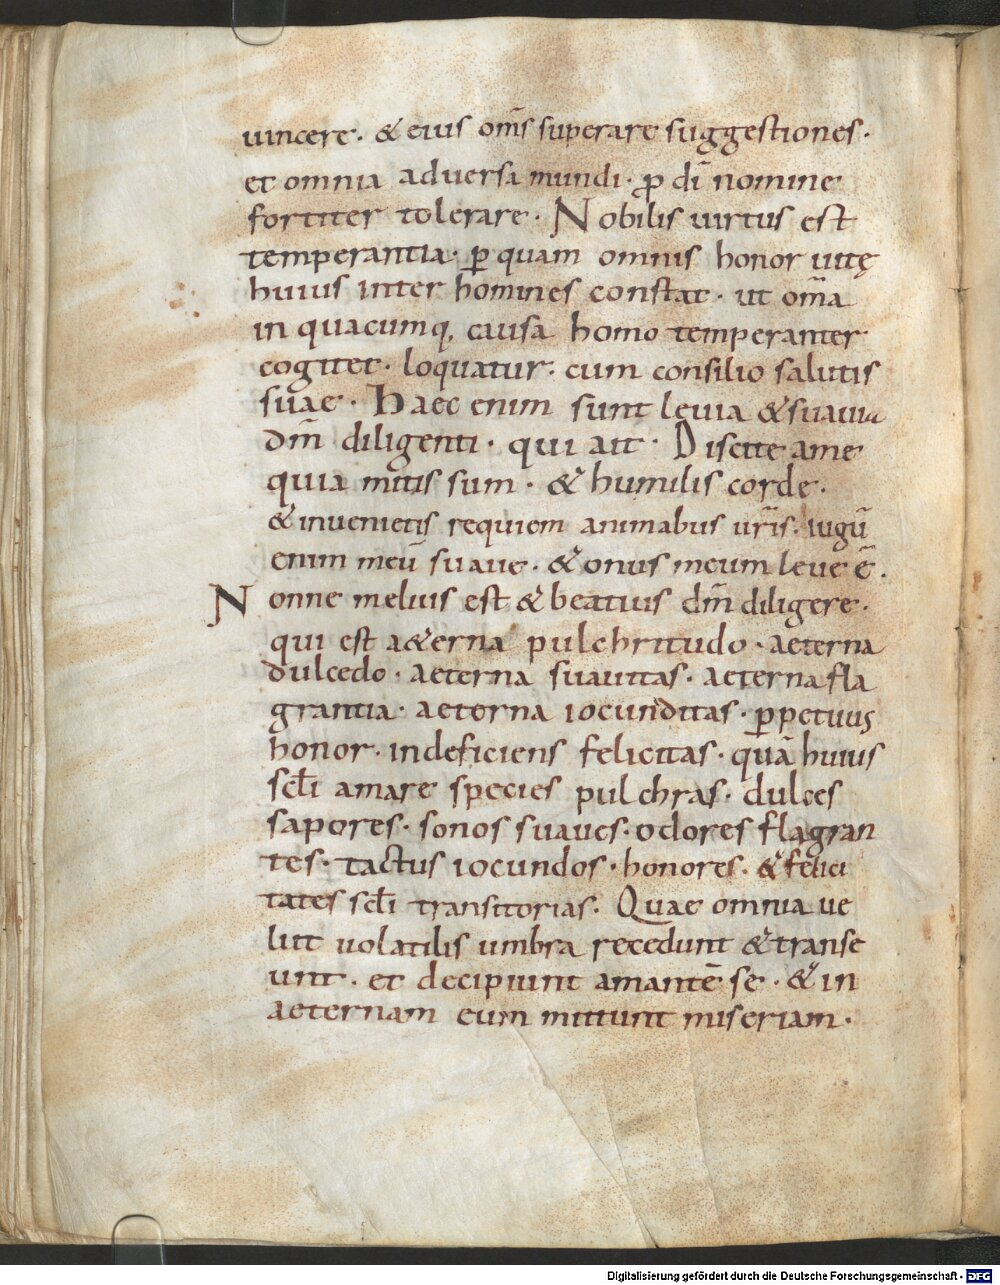 uincere · & eius om̅s superare suggestiones ·
et omnia aduersa mundi · ꝓ di̅ nomine
fortiter tolerare · Nobilis uirtus est
temperantia · ꝑ quam omnis honor uitę
huius inter homines constat · ut om̅a
in quacumq, causa homo temperanter
cogitet · loquatur · cum consilio salutis
suae · Haec enim sunt leuia & suauia
dm̅ diligenti · qui ait · Discite ame
quia mitis sum · & humilis corde ·
& inuenietis requiem animabus ur̅is · iugu̅
enim meu̅ suaue · & onus meum leue e̅ .
Nonne melius est & beatius dm̅ diligere ·
qui est a&erna pulchritudo · aeterna
dulcedo · aeterna suauitas · aeterna fla
grantia · aeterna iocunditas · ꝑpetuus
honor · indeficiens felicitas · qua̅ huius
scl̅i amare species pulchras · dulces
sapores · sonos suaues · odores flagran
tes · tactus iocundos · honores · & felici
tates scl̅i transitorias · Quae omnia ue
lut uolatilis umbra recedunt & transe
unt · et decipiunt amante̅ se · & in
aeternam eum mittunt miseriam ·
Digitalisierung gefördert durch die Deutsche Forschungsgemeinschaft - DFG